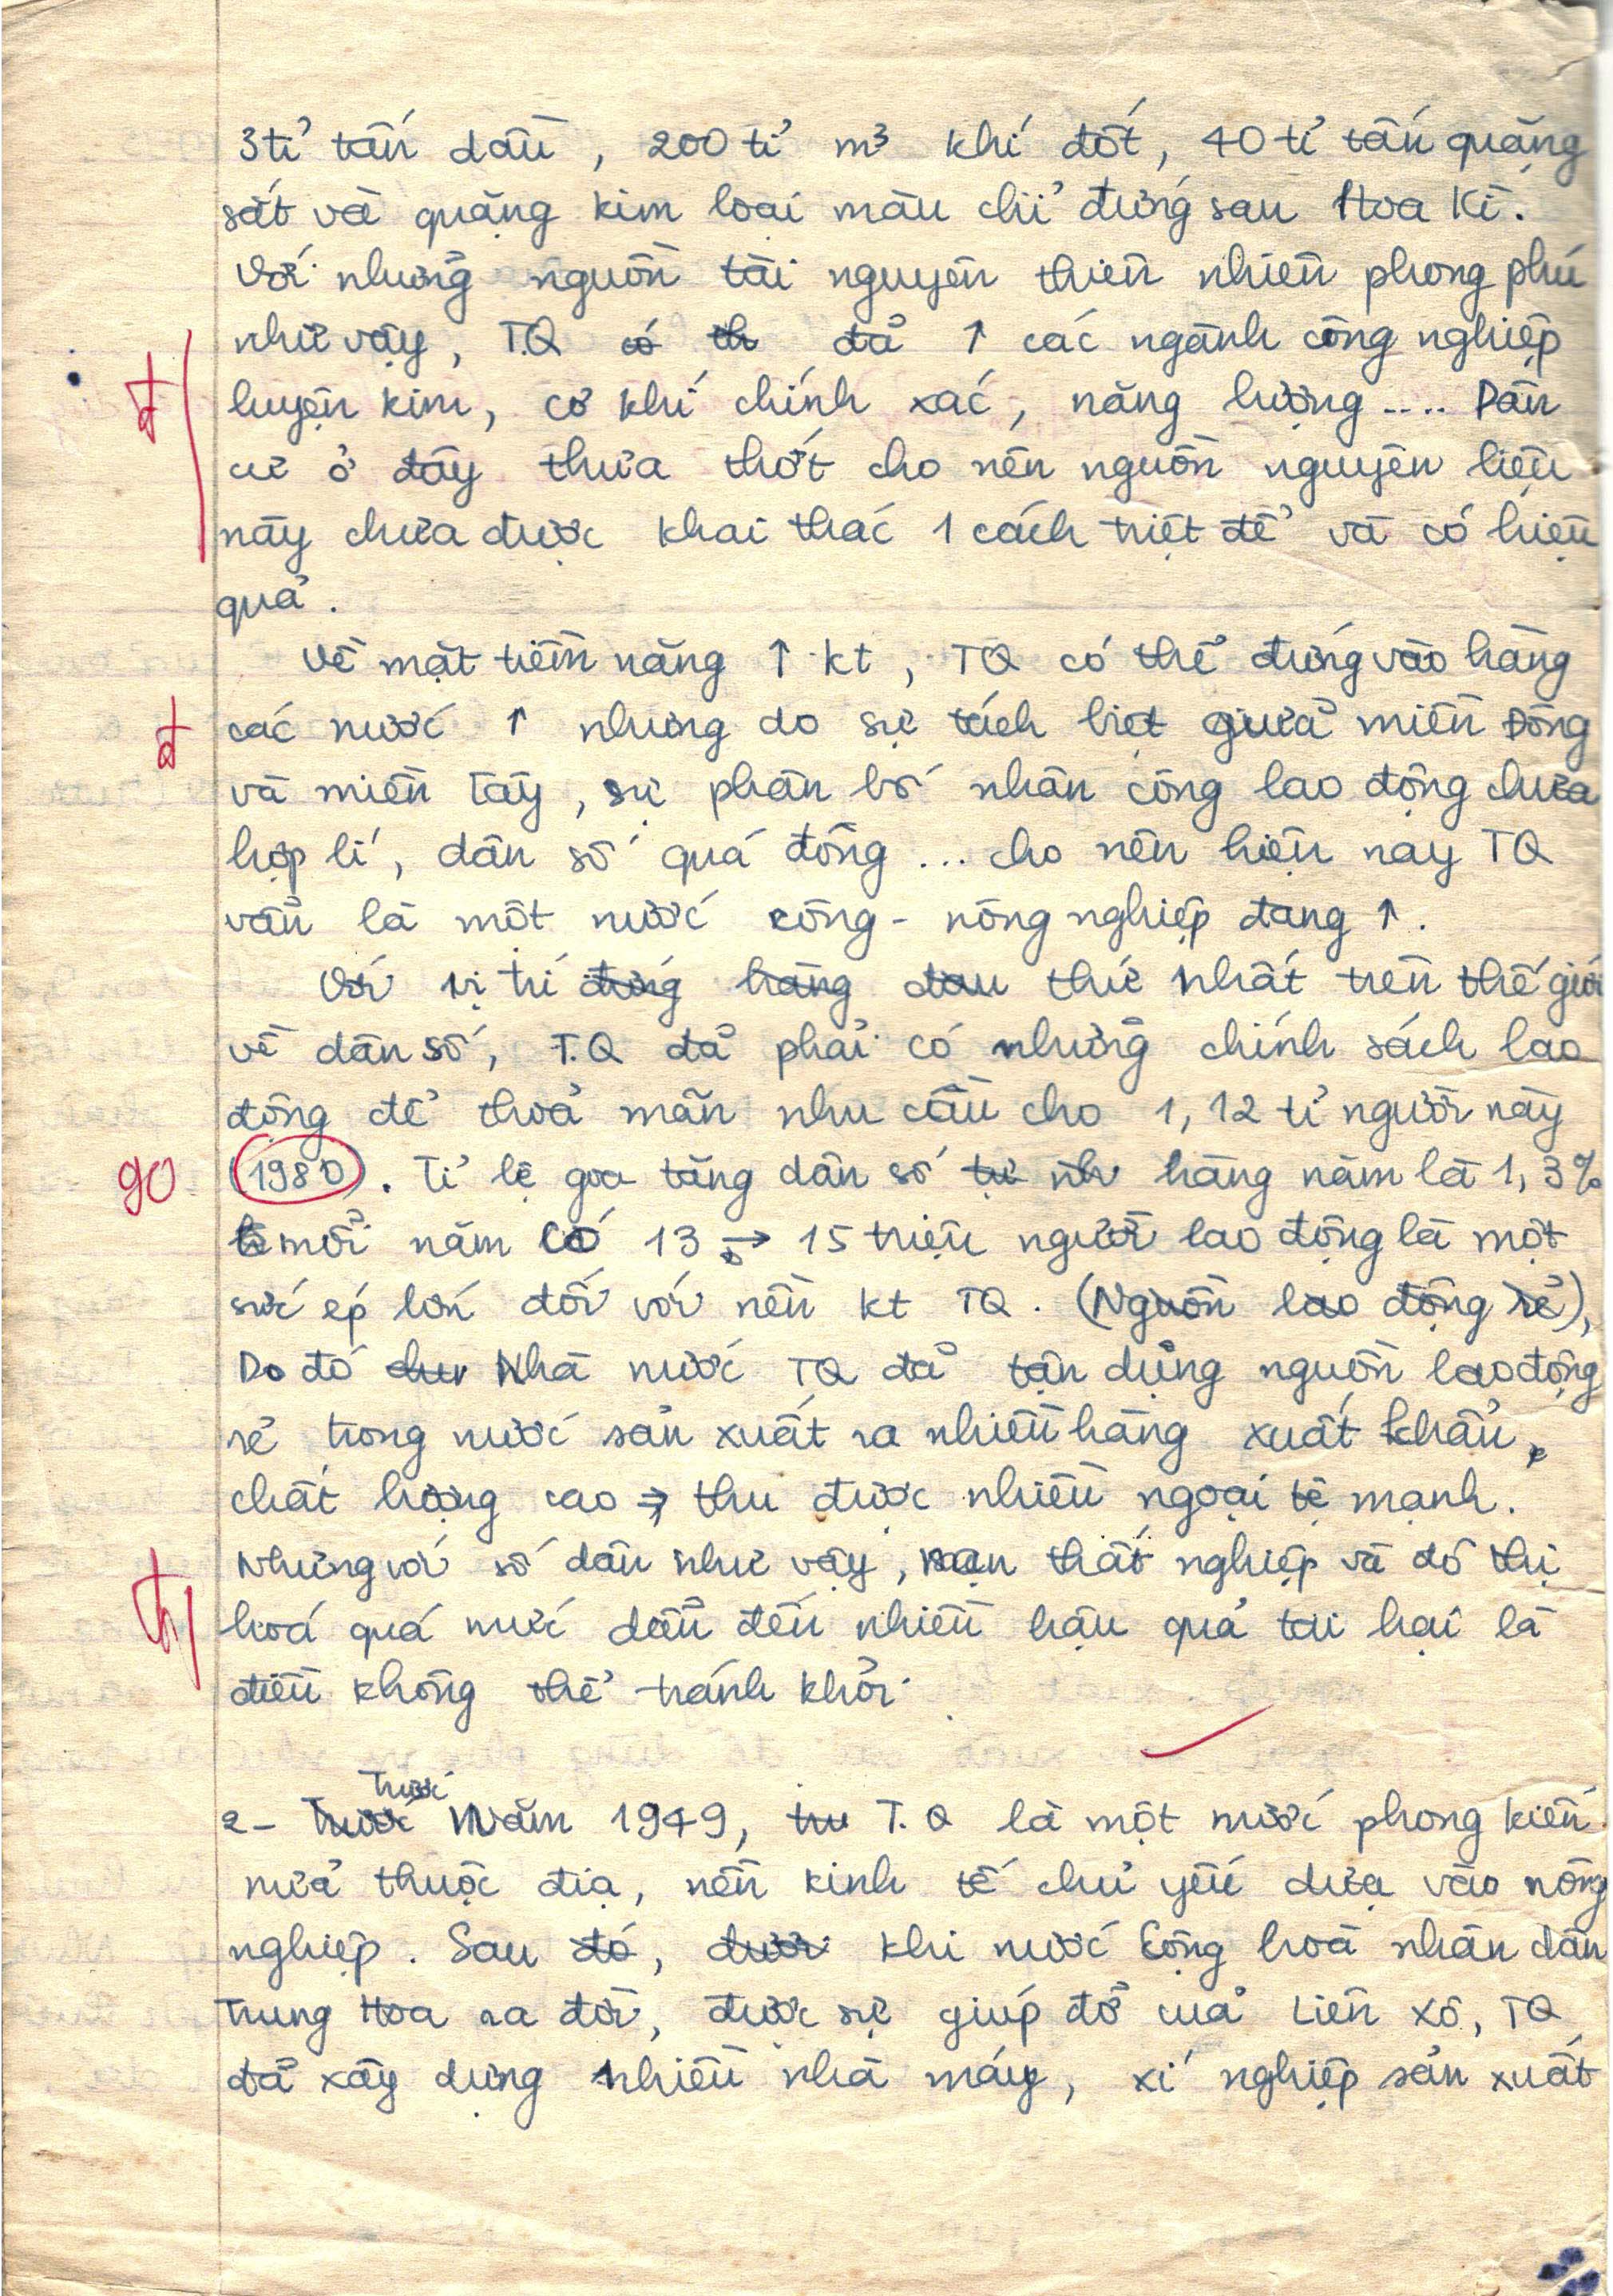 3 tỉ tấn dầu, 200 tỉ m³ khí đốt, 40 tỉ tấn quặng
sắt và quặng kim loại màu chỉ đứng sau Hoa Kì.
Với những nguồn tài nguyên thiên nhiên phong phú
như vậy, T.Q có th đã ↑ các ngành công nghiệp
luyện kim, cơ khí chính xác, năng lượng .... Dân
cư ở đây thưa thớt cho nên nguồn nguyên liệu
này chưa được khai thác 1 cách triệt để và có hiệu
quả.
Về mặt tiềm năng ↑ kt, TQ có thể đứng vào hàng
các nước ↑ nhưng do sự tách biệt giữa miền Đông
và miền Tây, sự phân bố nhân công lao động chưa
hợp lí, dân số quá đông ... cho nên hiện nay TQ
vẫn là một nước công - nông nghiệp đang ↑.
Với vị trí đứng hàng đầu thứ nhất trên thế giới
về dân số, T.Q đã phải có những chính sách lao
động để thoả mãn nhu cầu cho 1,12 tỉ người này
90 (1980). Tỉ lệ gia tăng dân số tự nh hàng năm là 1,3%
mỗi năm có 13 → 15 triệu người lao động là một
sức ép lớn đối với nền kt TQ. (Nguồn lao động rẻ),
Do đó Nhà nước TQ đã tận dụng nguồn lao động
rẻ trong nước sản xuất ra nhiều hàng xuất khẩu,
chất lượng cao → thu được nhiều ngoại tệ mạnh.
Nhưng với số dân như vậy, nạn thất nghiệp và đô thị
hoá quá mức dẫn đến nhiều hậu quả tai hại là
điều không thể tránh khỏi.
Trước
2- Trước Năm 1949, T.Q là một nước phong kiến
nửa thuộc địa, nền kinh tế chủ yếu dựa vào nông
nghiệp. Sau đó, được khi nước Cộng hoà nhân dân
Trung Hoa ra đời, được sự giúp đỡ của Liên Xô, TQ
đã xây dựng nhiều nhà máy, xí nghiệp sản xuất